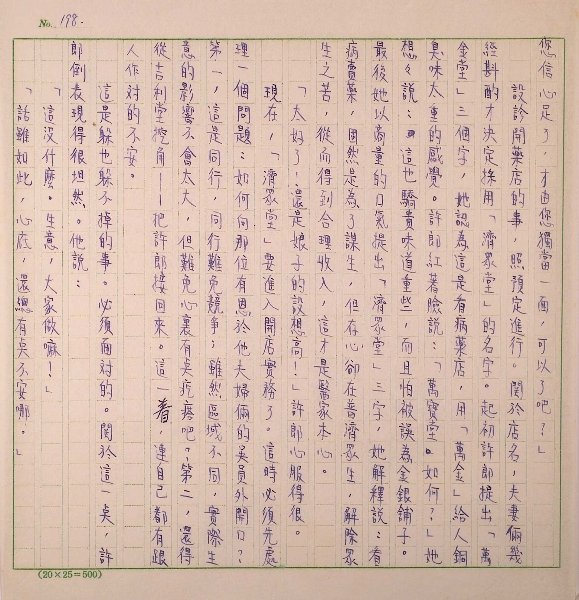 No. 198.
您信心足了，才由您獨當一面，可以了吧？」
設診開藥店的事，照預定進行。關於店名，夫妻倆幾
經斟酌才決定採用「濟眾堂」的名字。起初許郎提出「萬
金堂」三個字，她認為這是看病藥店，用「萬金」給人銅
臭味太重的感覺。許郎紅著臉說：「萬寶堂。如何？」她
想々說：「這也驕貴味道重些，而且怕被誤為金銀舖子。
最後她以商量的口氣提出「濟眾堂」三字，她解釋說：看
病賣藥，固然是為了謀生，但存心卻在普濟眾生，解除眾
生之苦，從而得到合理收入，這才是醫家本心。
「太好了！還是娘子的設想高！」許郎心服得很。
現在，「濟眾堂」要進入開店實務了。這時必須先處
理一個問題：如何向那位有恩於他夫婦倆的吳員外開口？
第一，這是同行，同行難免競爭；雖然區域不同，實際生
意的影響不會太大，但難免心裏有吳疙瘩吧。第二，還得
從吉利堂挖角——把許郎接回來。這一着，連自己都有跟
人作對的不安。
這是躲也躲不掉的事。必須面對的。關於這一點，許
郎倒表現得很坦然。他說：
「這沒什麼。生意，大家做嘛！」
「話雖如此，心底，還總有點不安哪。」
(20×25=500)